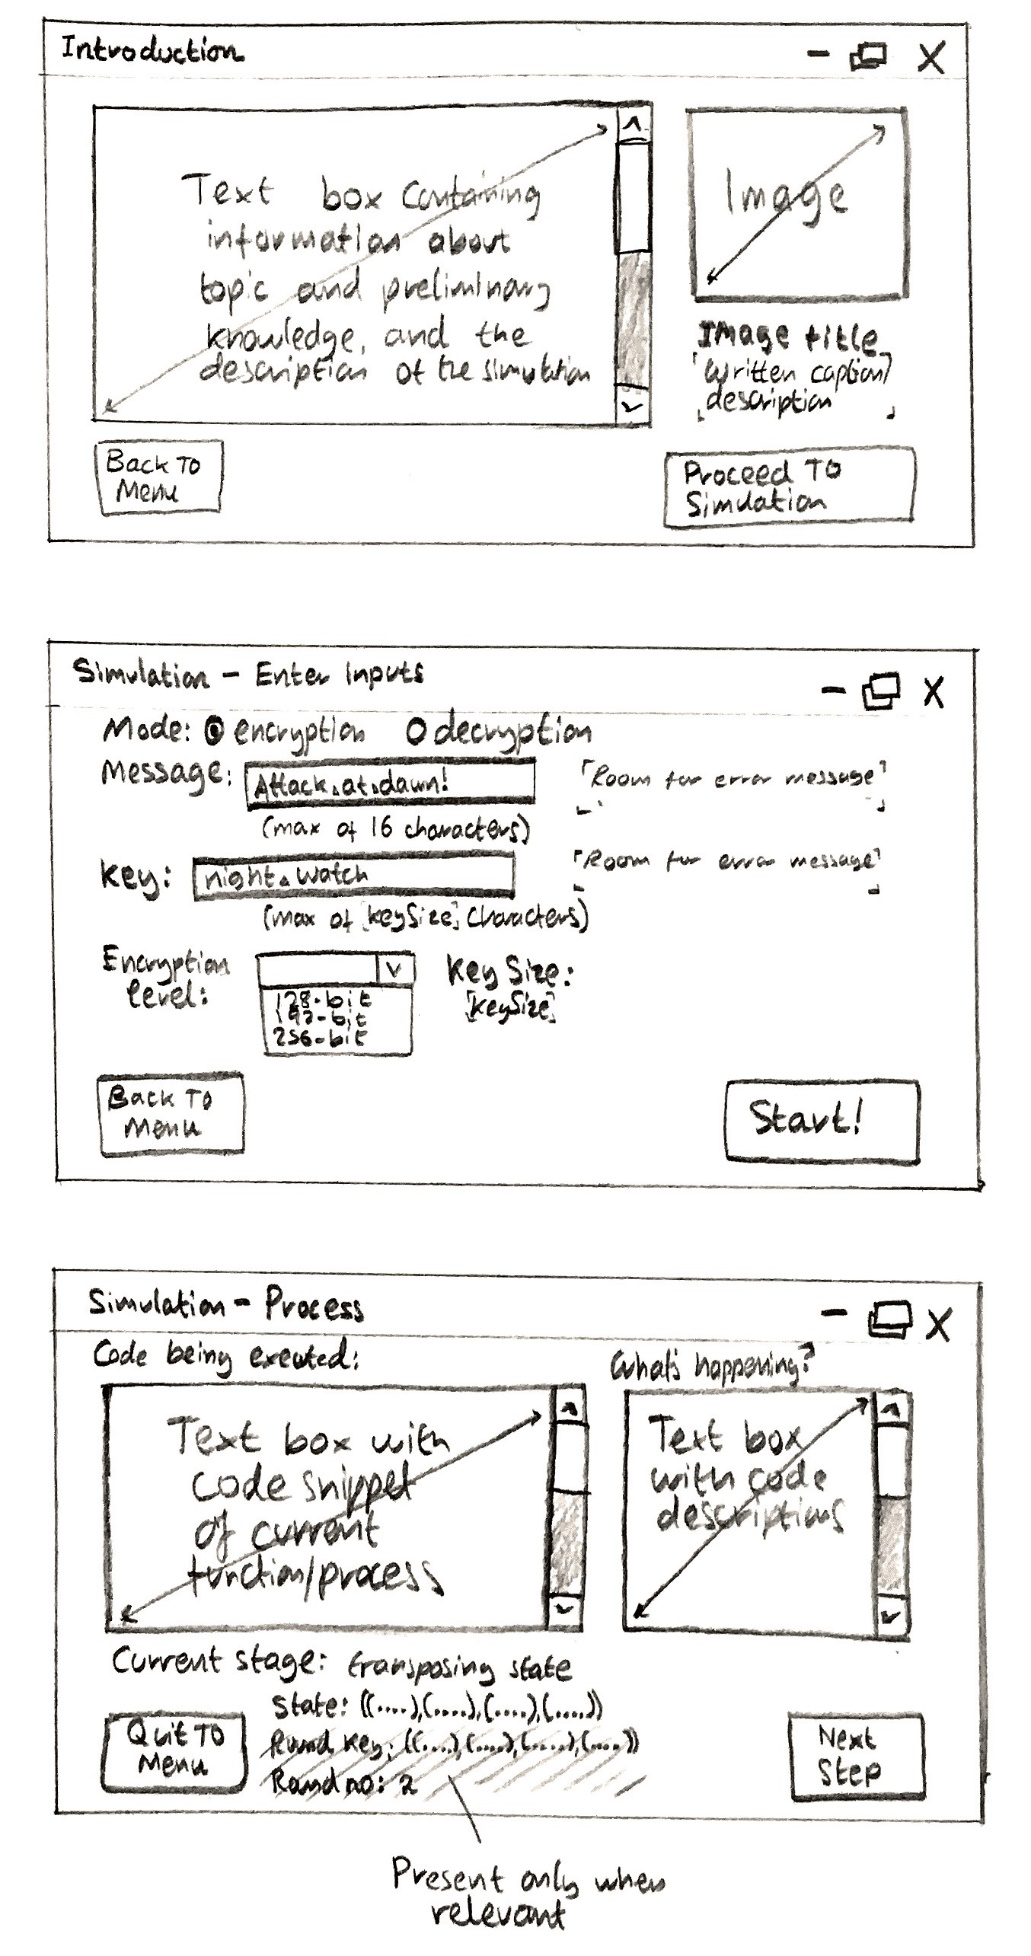 Introduction
Text box containing
information about
topic and preliminary
knowledge, and the
description of the simulation
Image
Image title
Written caption/
description
Back To
Menu
Proceed To
Simulation
Simulation - Enter Inputs
Mode: encryption decryption
Message: Attack at dawn!
Room for error message
(max of 16 characters)
Key: night watch
Room for error message
(max of [keySize] characters)
Encryption
level:
128-bit
192-bit
256-bit
Key Size:
[keySize]
Back To
Menu
Start!
Simulation - Process
Code being executed:
What's happening?
Text box with
code snippet
of current
function/process
Text box
with code
descriptions
Current stage: transposing state
State: ((....),(....),(....),(....))
Round key: ((....),(....),(....),(....))
Round no: 2
Quit To
Menu
Next
Step
Present only when
relevant